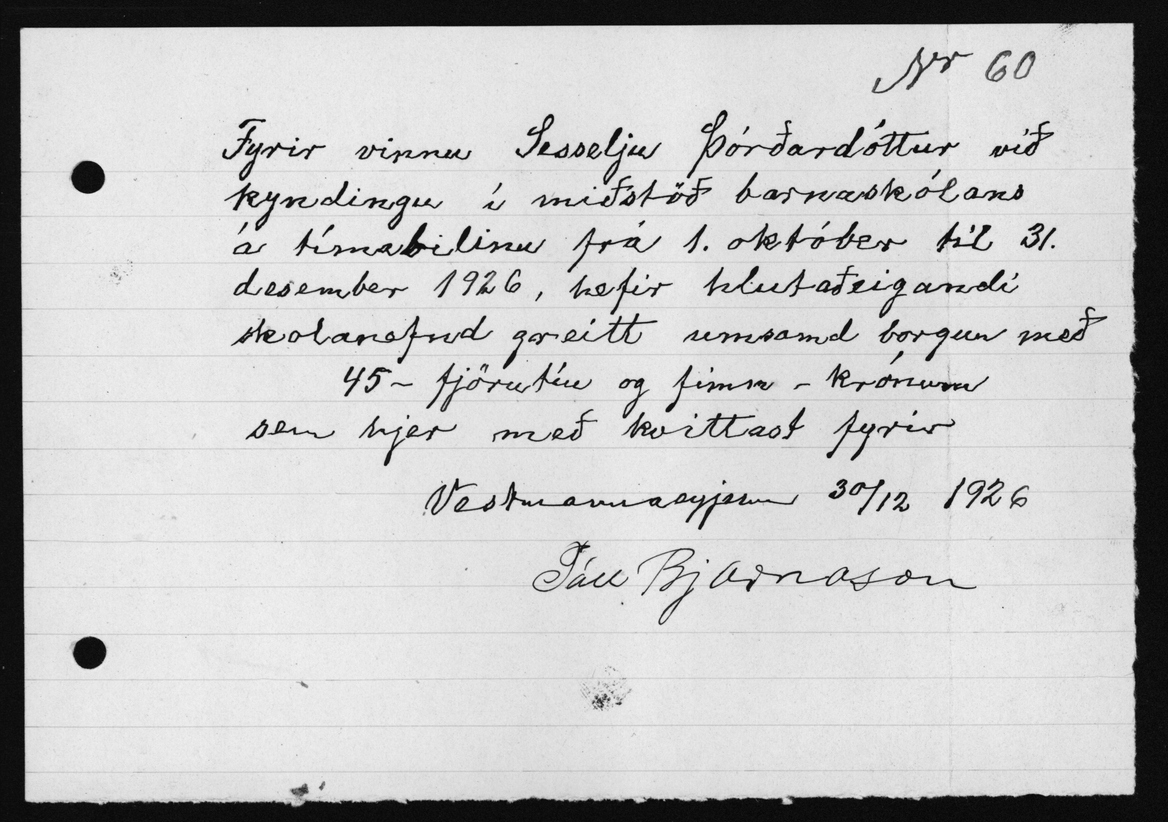 Nr 60
Fyrir vinnu Sesselju Þórðardóttur við
kyndingu í miðstöð barnaskólans
á tímabilinu frá 1. október til 31.
desember 1926, hefir hlutaðeigandi
skolanefnd greitt umsamd borgun með
45 - fjörutíu og fimm - krónum
sem hjer með kvittast fyrir
Vestmannaeyjum 30/12 1926
Páll Bjarnason